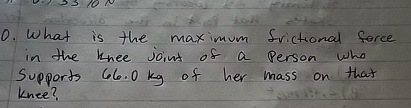 0. What is the maximum frictional force
in the knee joint of a person who
supports 66.0 kg of her mass on that
knee?